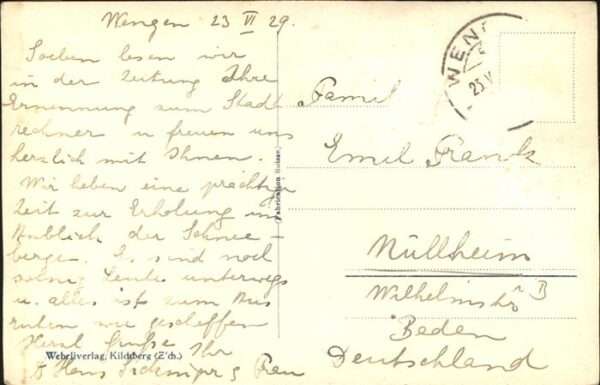 Wengen 23 VI 29.
Soeben lesen wir
in der Zeitung Ihre
Ernennung zum Stadt
rechner u freuen uns
herzlich mit Ihnen.
Wir haben eine prächtige
Zeit zur Erholung im
Anblick der Schnee-
berge. sind noch
Leute unterwegs
u. alles ist zum Aus
ruhen wie geschaffen
Herzl Grüße Ihr
Hans Frau
Webeliverlag, Kilchberg (Z'ch.)
WEN
23.V
Famil
Emil Franck
Müllheim
Wilhelmstr
Baden
Deutschland